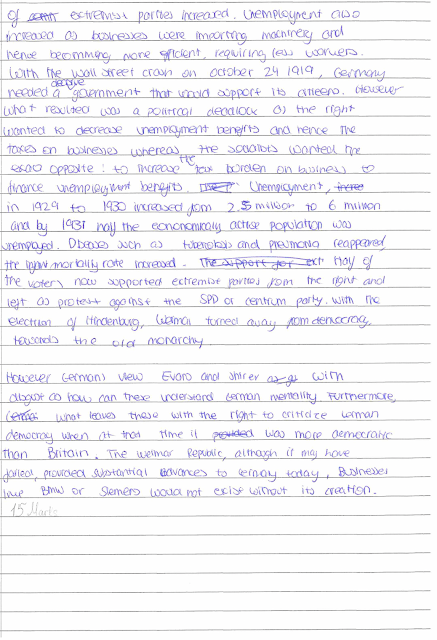 of extremist parties increased. Unemployment also
increased as businesses were importing machinery and
hence becomming more efficient, requiring less workers.
With the wall street crash on october 24 1919, Germany
needed a decisive government that would support its citizens. However
what resulted was a political deadlock as the right
wanted to decrease unemployment benefits and hence the
taxes on businesses whereas the socialists wanted the
exact opposite: to increase the tax burden on business to
finance unemployment benefits. Unemployment,
in 1929 to 1930 increased from 2.5 million to 6 million
and by 1931 half the economically active population was
unemployed. Diseases such as tuberculosis and pneumonia reappeared,
the infant mortality rate increased. The support for ext Half of
the voters now supported extremist parties from the right and
left as protest against the SPD or centrum party. With the
election of Hindenburg, Weimar turned away from democracy,
towards the old monarchy.
However Germans view Evans and Shirer as with
disgust as how can these understand German mentality. Furthermore,
what leaves these with the right to criticize German
democracy when at that time it provided was more democratic
than Britain. The Weimar Republic, although it may have
failed, provided substantial advances to Germany today, Businesses
like BMW or Siemens would not exist without its creation.
15 Marks